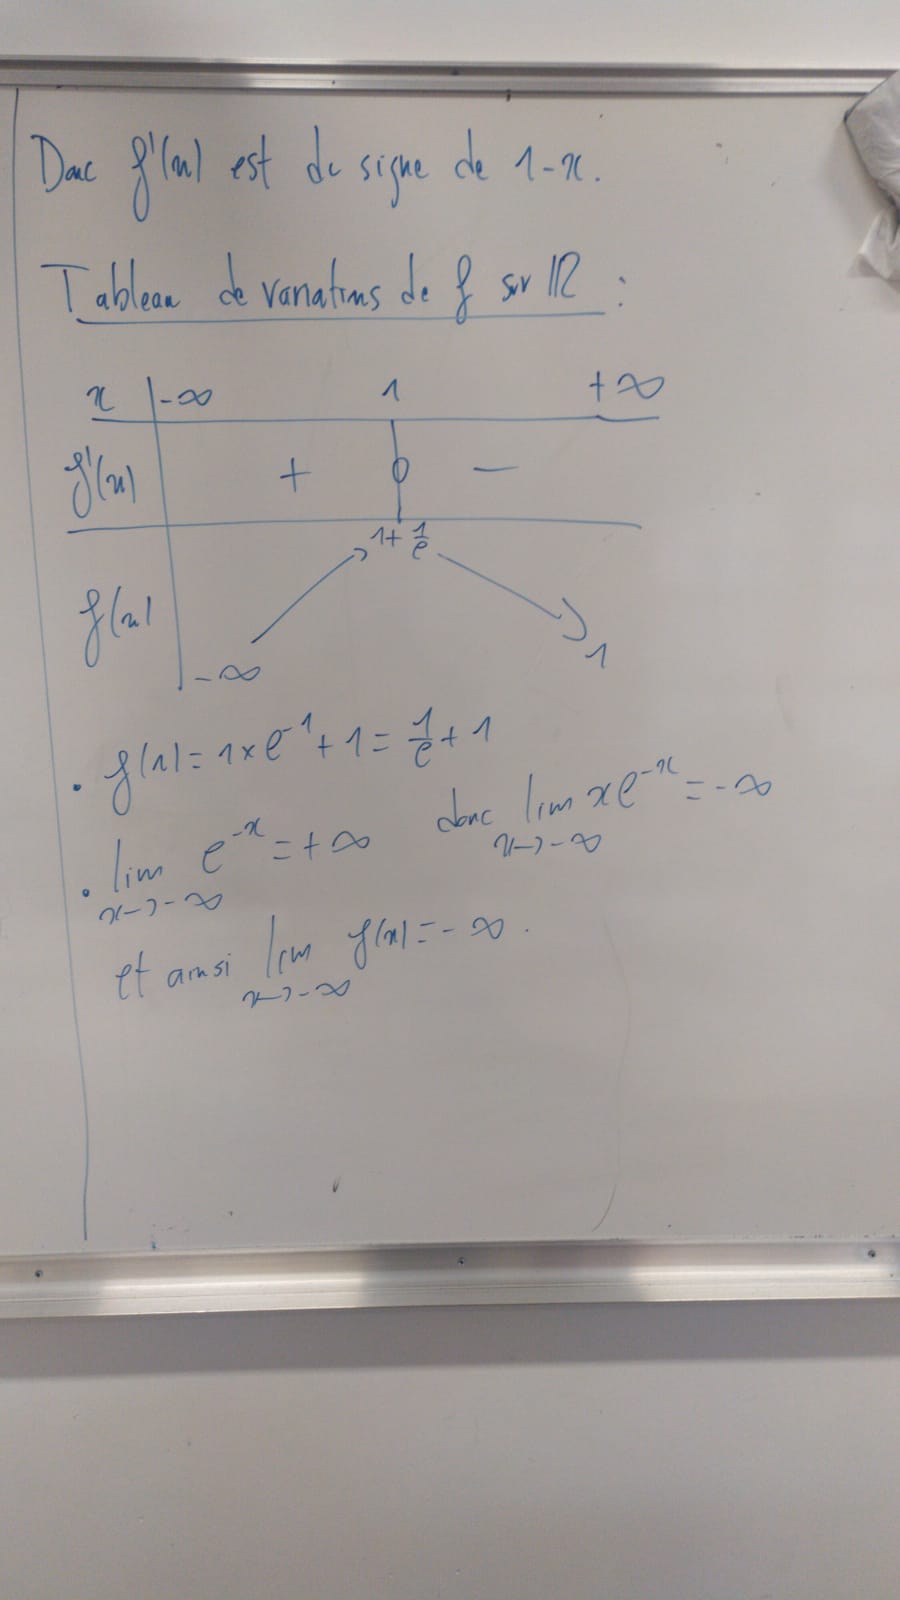 Donc f'(x) est du signe de 1-x.
Tableau de variations de f sur ℝ :
x -∞ 1 +∞
f'(x) + 0 -
1+ 1/e
f(x)
-∞ 1
. f(1) = 1×e^-1 + 1 = 1/e + 1
. lim e^-x = +∞ donc lim xe^-x = -∞
x→-∞ x→-∞
et ainsi lim f(x) = -∞.
x→-∞